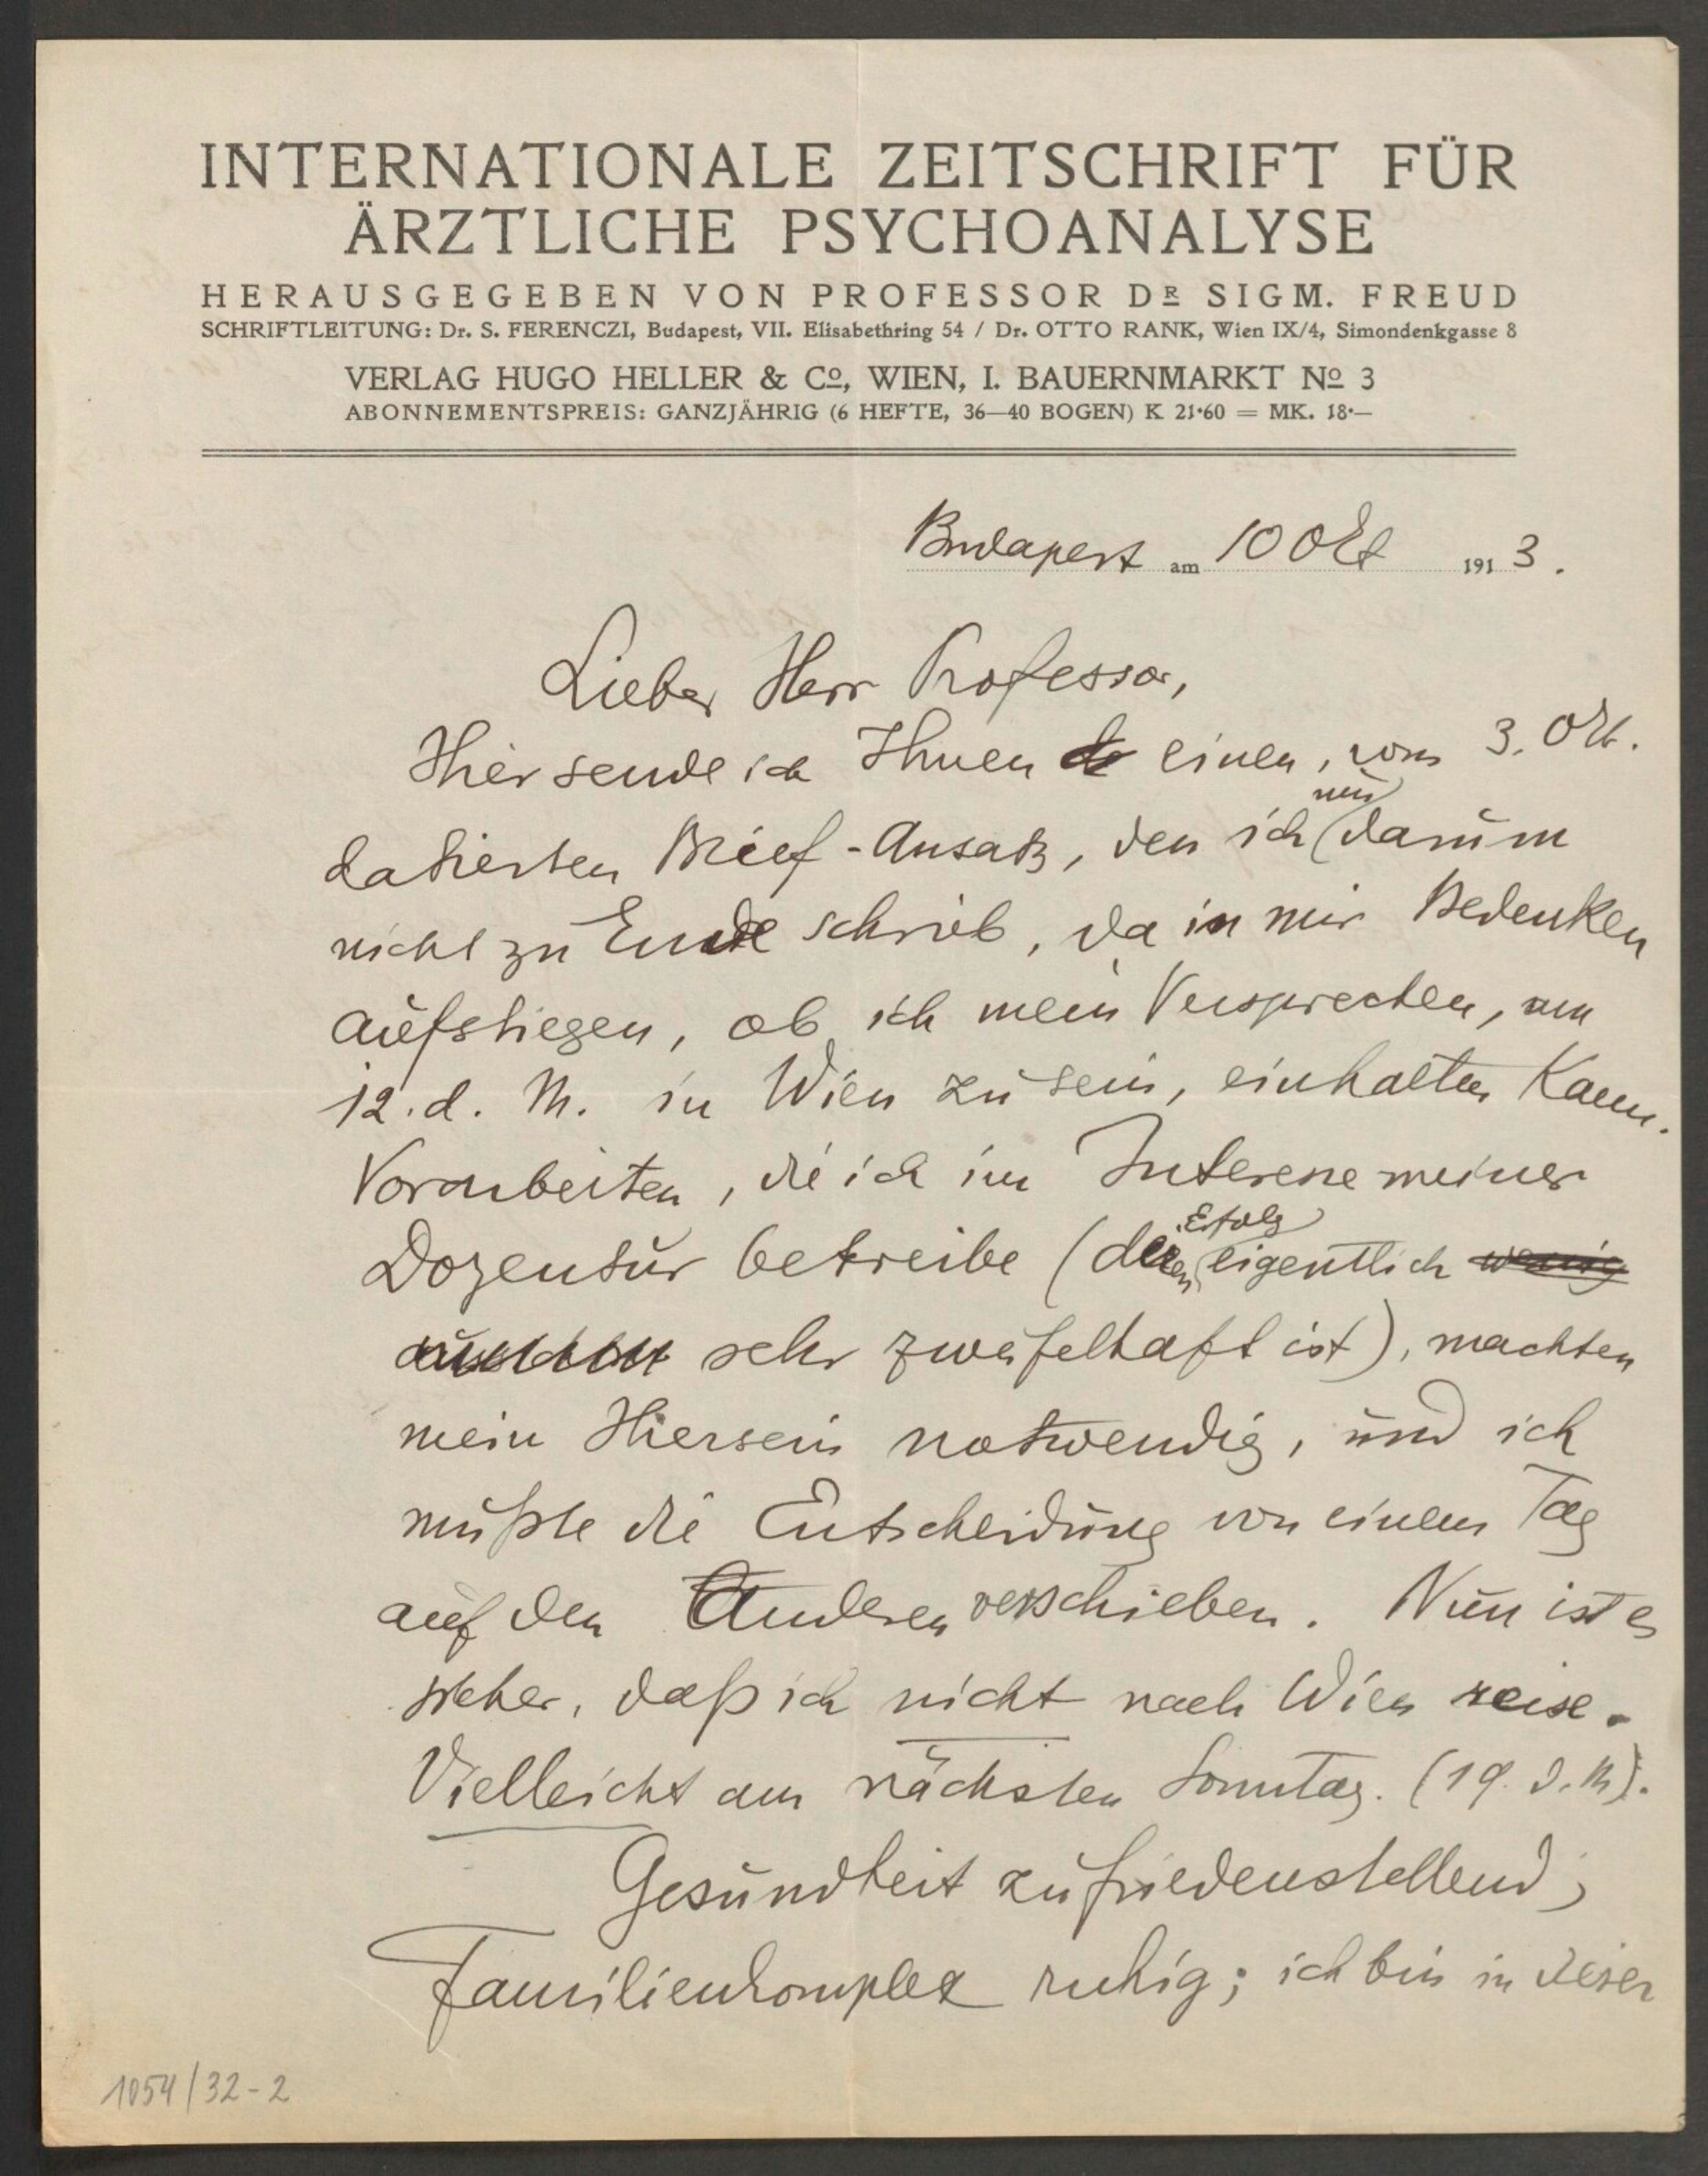 INTERNATIONALE ZEITSCHRIFT FÜR
ÄRZTLICHE PSYCHOANALYSE
HERAUSGEGEBEN VON PROFESSOR DR SIGM. FREUD
SCHRIFTLEITUNG: Dr. S. FERENCZI, Budapest, VII. Elisabethring 54 / Dr. OTTO RANK, Wien IX/4, Simondenkgasse 8
VERLAG HUGO HELLER & Co, WIEN, I. BAUERNMARKT No 3
ABONNEMENTSPREIS: GANZJÄHRIG (6 HEFTE, 36—40 BOGEN) K 21·60 = MK. 18·—
Budapest am 10 Okt 1913.
Lieber Herr Professor,
Hier sende ich Ihnen einen, vom 3. Okt.
datierten Brief-Ansatz, den ich nur darum
nicht zu Ende schrieb, da in mir Bedenken
aufstiegen, ob ich mein Versprechen, am
12. d. M. in Wien zu sein, einhalten kann.
Vorarbeiten, die ich im Interesse meiner
Dozentur betreibe (deren Erfolg eigentlich wenig
sehr zweifelhaft ist), machten
mein Hiersein notwendig, und ich
mußte die Entscheidung von einem Tag
auf den Anderen verschieben. Nun ist es
sicher, daß ich nicht nach Wien reise.
Vielleicht am nächsten Sonntag. (19. d. M).
Gesundheit zufriedenstellend;
Familienkomplex ruhig; ich bin in dieser
1054/32-2